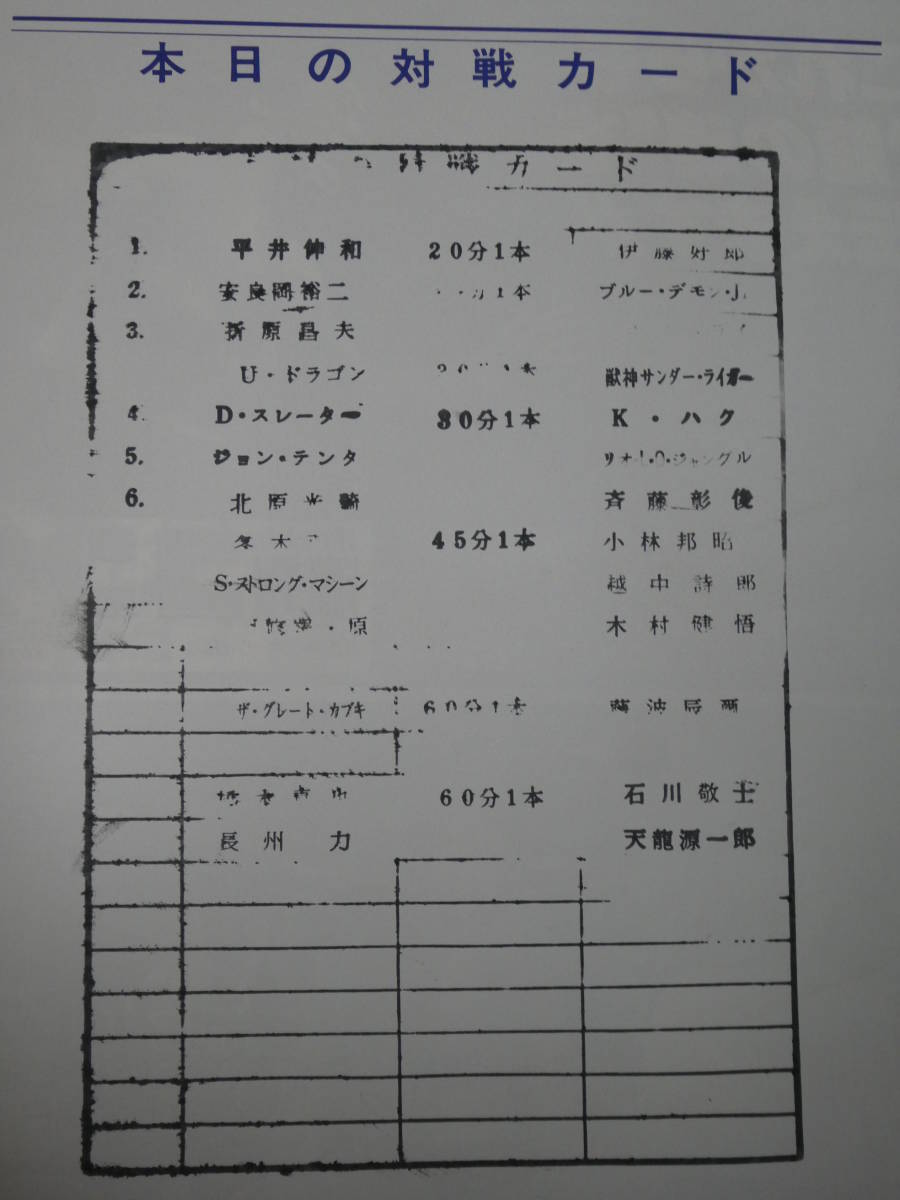 本日の対戦カード
対戦カード
1. 平井伸和 20分1本 伊藤好郎
2. 安良岡裕二 分1本 ブルー・デモン・Jr
3. 折原昌夫
U・ドラゴン 獣神サンダー・ライガー
4. D・スレーター 30分1本 K・ハク
5. ジョン・テンタ リオ・ジャングル
6. 北原光騎 斉藤彰俊
冬木 45分1本 小林邦昭
S・ストロング・マシーン 越中詩郎
・原 木村健悟
ザ・グレート・カブキ 60分1本 藤波辰爾
60分1本 石川敬士
長州 力 天龍源一郎